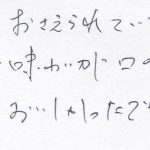 おさえられてい
味わが口の
おいしかったで